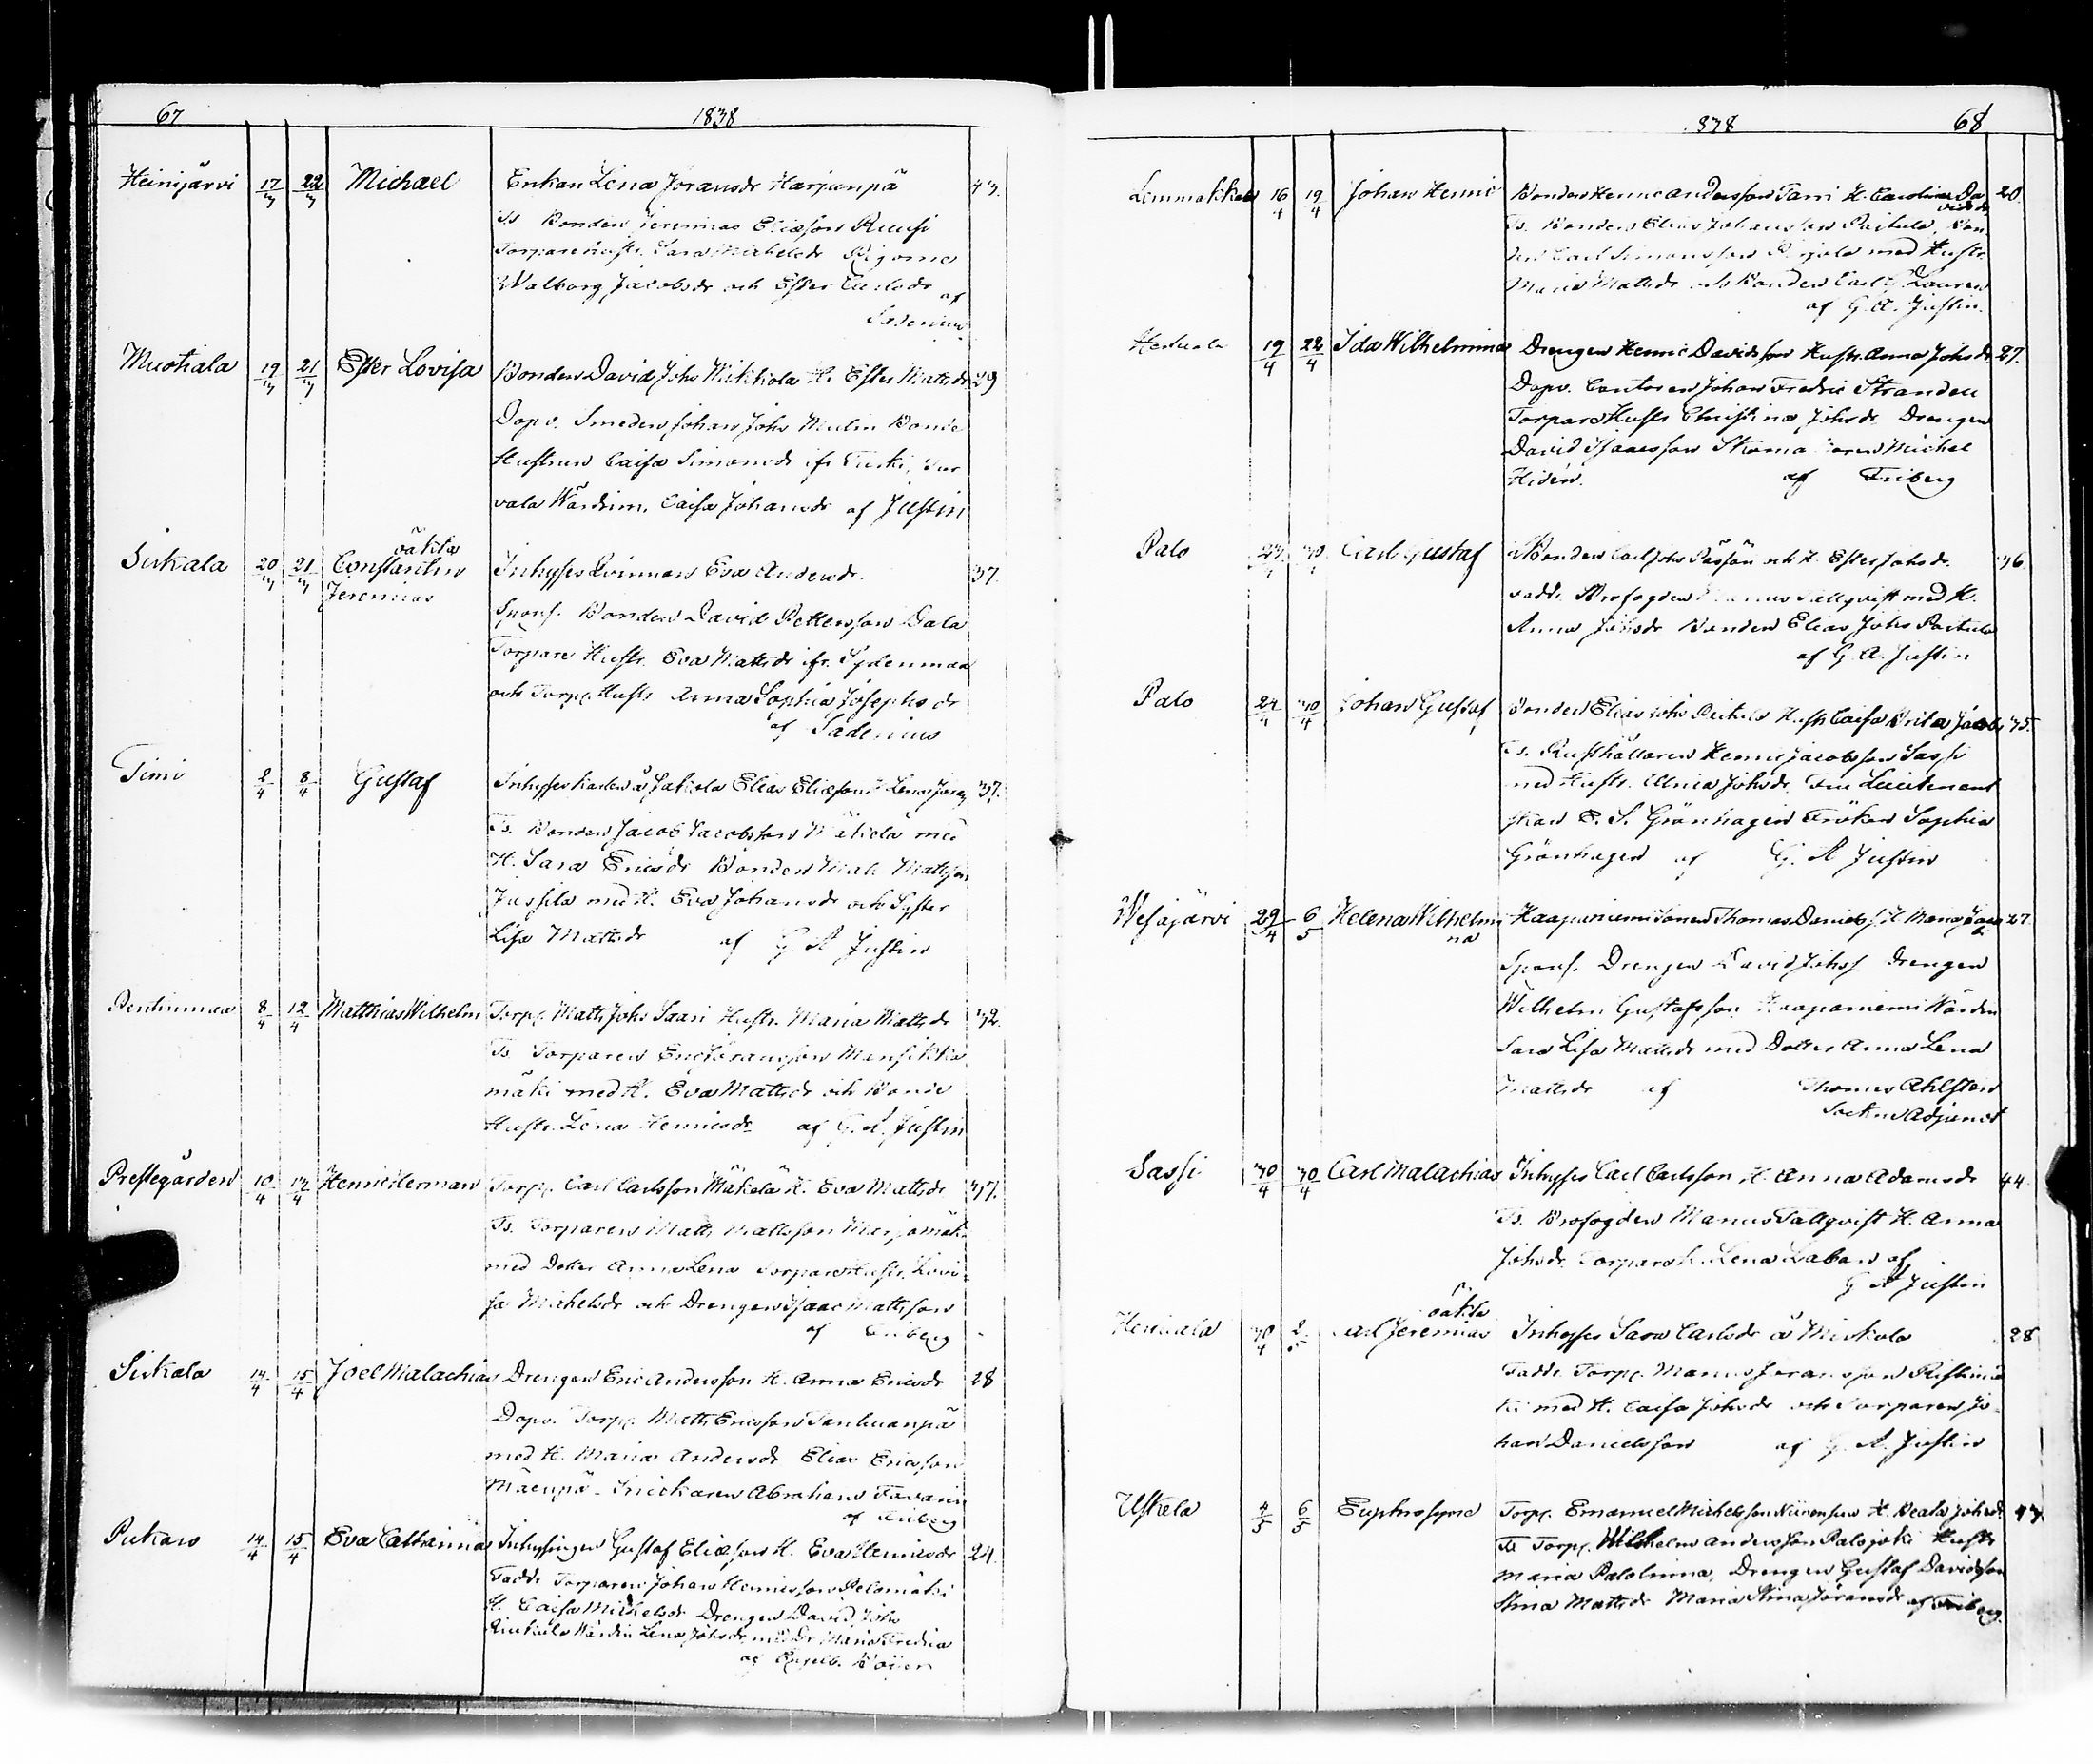 67 1838
Heinijärvi 17/3 22/3 Michael Enkan Lena Joransdr Harjunpä 43.
Ts Bonden Jeremias Eliæson Ruusi
Torparehustr. Sara Michelsdr
Walborg Jacobsdr och Ester Carlsdr af
Sadenius
Muotiala 19/3 21/3 Ester Lovisa Bonden David Johs Mikkola H. Ester Mattsdr 29
Dopv. Smeden Johan Johs Malin Bonde
Hustrun Caisa Simonsdr ifr
vala Wärdin. Caisa Johansdr af Justin
oäkta
Sirkala 20/3 21/3 Constantin Inhyses Qvinnan Eva Andersdr. 37.
Jeremias
Spons. Bonden David Pettersson Dala
Torpare Hustr. Eva Mattsdr ifr. Sydenmaa
och Torp. Hustr Anna Sophia Josephsdr
af Sadenius
Timi 2/4 8/4 Gustaf Inhyses karlen å Jakola Elias Eliæson Lena Joransdr 37.
Ts. Bonden Jacob Jacobsson Mäkelä med
H. Sara Ericsdr Bonden Matts Mattsson
Jussila med H. Eva Johansdr och Syster
Lisa Mattsdr af G. A Justin
Pentinmaa 8/4 12/4 Matthias Wilhelm Torp. Matts Johs Saari Hustr. Maria Mattsdr 32.
Ts Torparen Eric Joransson Mansikka
mäki med H. Eva Mattsdr och Bonde
Hustr. Lena Henricsdr af G. A. Justin
Prestegården 10/4 13/4 Henric Herman Torp. Carl Carlsson Mäkelä H. Eva Mattsdr 37.
Ts. Torparen Matts Mattsson Marjamäki
med Dotter Anna Lena Torpare Hustr. Lovi-
sa Michelsdr och Drengen Isaac Mattsson
af Friberg
Sirkala 14/4 15/4 Joel Malachias Drengen Eric Andersson H. Anna Ericsdr 28
Dopv. Torp. Matts Ericsson Tanhuanpä
med H. Maria Andersdr Elias Ericsson
Mäenpä. Snickaren Abraham Favorin
af Friberg
Pukaro 14/4 15/4 Eva Catharina Inhysingen Gustaf Eliæson H. Eva Henricsdr 24.
Fadd. Torparen Johan Henricsson Pelomäki
H. Caisa Michelsdr Drengen David Johs
Wärdin Lena Johsdr med Dr Maria Fredrica
af
1838 68
Lemmakkala 16/4 19/4 Johan Henric Bonden Henric Andersson Parri H. Carolina Da 20
vidsdr
Ts. Bonden Elias Johansson Paitula, Bon
den Carl Simonsson med Hustr
Maria Mattsdr och Bonden Carl G. Lauren
af G. A. Justin.
19/4 22/4 Ida Wilhelmina Drengen Henric Davidsson Hustr. Anna Johsdr 27.
Dopv. Cantoren Johan Fredric Strandell
Torpare Hustr Christina Johsdr Drengen
David Isaacsson Skomakaren Michel
Hidén. af Friberg
Palo 27/4 30/4 Carl Gustaf Bonden Carl Johs Pässön och H. Ester Johsdr. 36
Fadd. Brofogden Manus Tallqvist med H.
Anna Johsdr Bonden Elias Johs Paitula
af G. A. Justin
Palo 24/4 30/4 Johan Gustaf Bonden Elias Johs Paitula Hustr Caisa Brita Jacobsdr 35.
Ts. Rusthållaren Henric Jacobsson Sassi
med Hustr. Ulrica Johsdr. Fru Lieutenant
skan E. S. Grönhagen Fröken Sophia
Grönhagen af G. A Justin
Wesajärvi 29/4 6/5 Helena Wilhelmi Haapaniemi Sonen Thomas Daniels H. 27.
na
Spons. Drengen David Johss Drengen
Wilhelm Gustafsson Haapaniemi Wärdin
Sara Lisa Mattsdr med Dotter Anna Lena
Mattsdr af Thomas Ahlsten
Sockne Adjunct
Sassi 30/4 30/4 Carl Malachias Inhyses Carl Carlsson H. Anna Adamsdr 44.
Ts. Brofogden Manus Tallqvist H. Anna
Johsdr. Torpareh. Lena Laban af
G A Justin
oäkta
30/4 2/5 Carl Jeremias Inhyses Sara Carlsdr å Mickola 28
Fadd. Torp. Manus Joransson Ristimä
ki med H. Caisa Johsdr och Torparen Jo
han Danielsson af G. A. Justin
Uskela 4/5 6/5 Euphrosyne Torp. Emanuel Michelsson H. Beata Johsdr 43.
Ts Torp. Wilhelm Andersson Palojoki Hustr
Maria Palolinna, Drengen Gustaf Davidsson
Stina Mattsdr Maria Stina Joransdr af Friberg.